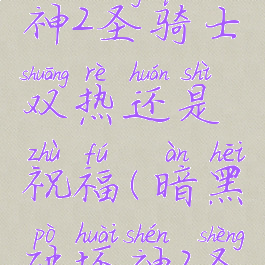 神2圣骑士
shuāng rè huán shì
双热还是
zhù fú àn hēi
祝福(暗黑
pò huài shén shèng
破坏神2圣